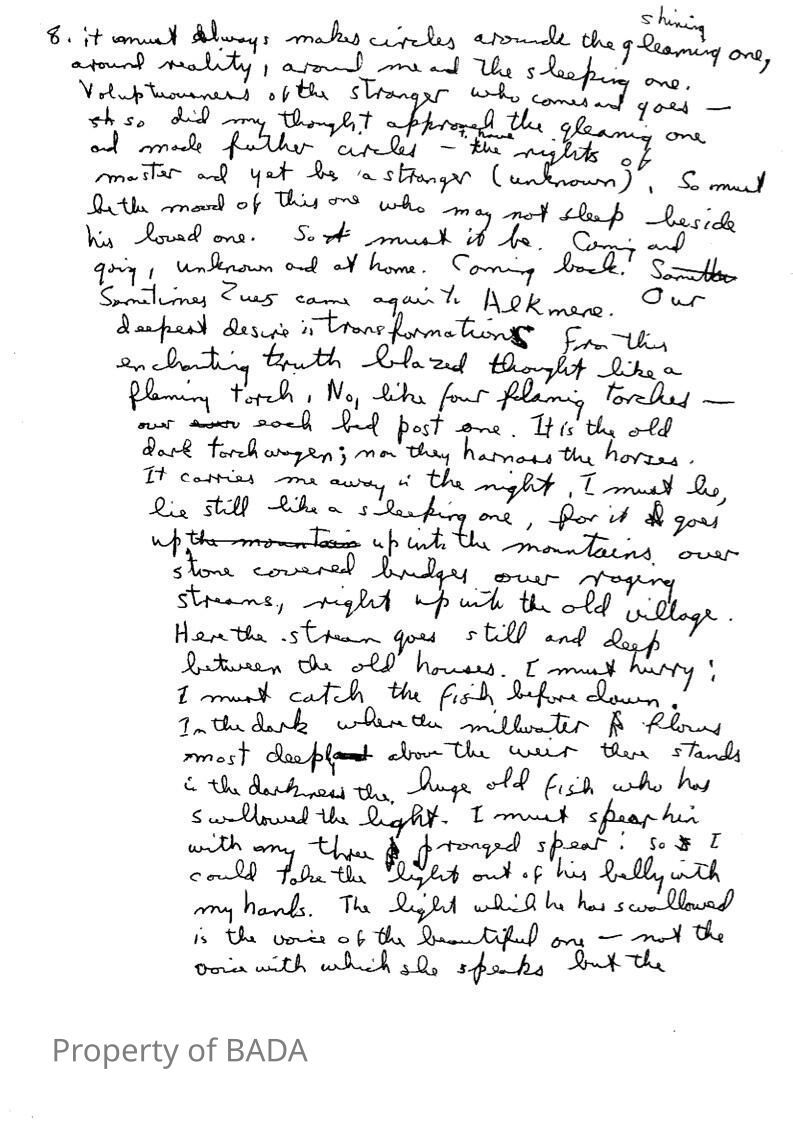 shining
8. it must always makes circles around the gleaming one,
around reality, around me and the sleeping one.
Voluptuousness of the stranger who comes and goes —
so did my thought approach the gleaming one
to have
and made further circles — the rights of
master and yet be a stranger (unknown). So must
be the mood of this one who may not sleep beside
his loved one. So must it be. Coming and
going, unknown and at home. Coming back. Sometim
Sometimes Zues came again to Alkmene. Our
deepest desire is transformation. From this
enchanting truth blazed thought like a
flaming torch. No, like four flaming torches —
over each bed post one. It is the old
dark torchwagen; now they harnass the horses.
It carries me away in the night. I must lie,
lie still like a sleeping one, for it goes
up the mountain up into the mountains over
stone covered bridges over raging
streams, right up into the old village.
Here the stream goes still and deep
between the old houses. I must hurry;
I must catch the fish before dawn.
In the dark where the millwater flows
most deeply above the weir there stands
in the darkness the huge old fish who has
swallowed the light. I must spear him
with my three pronged spear: so I
could take the light out of his belly with
my hands. The light which he has swallowed
is the voice of the beautiful one — not the
voice with which she speaks but the
Property of BADA